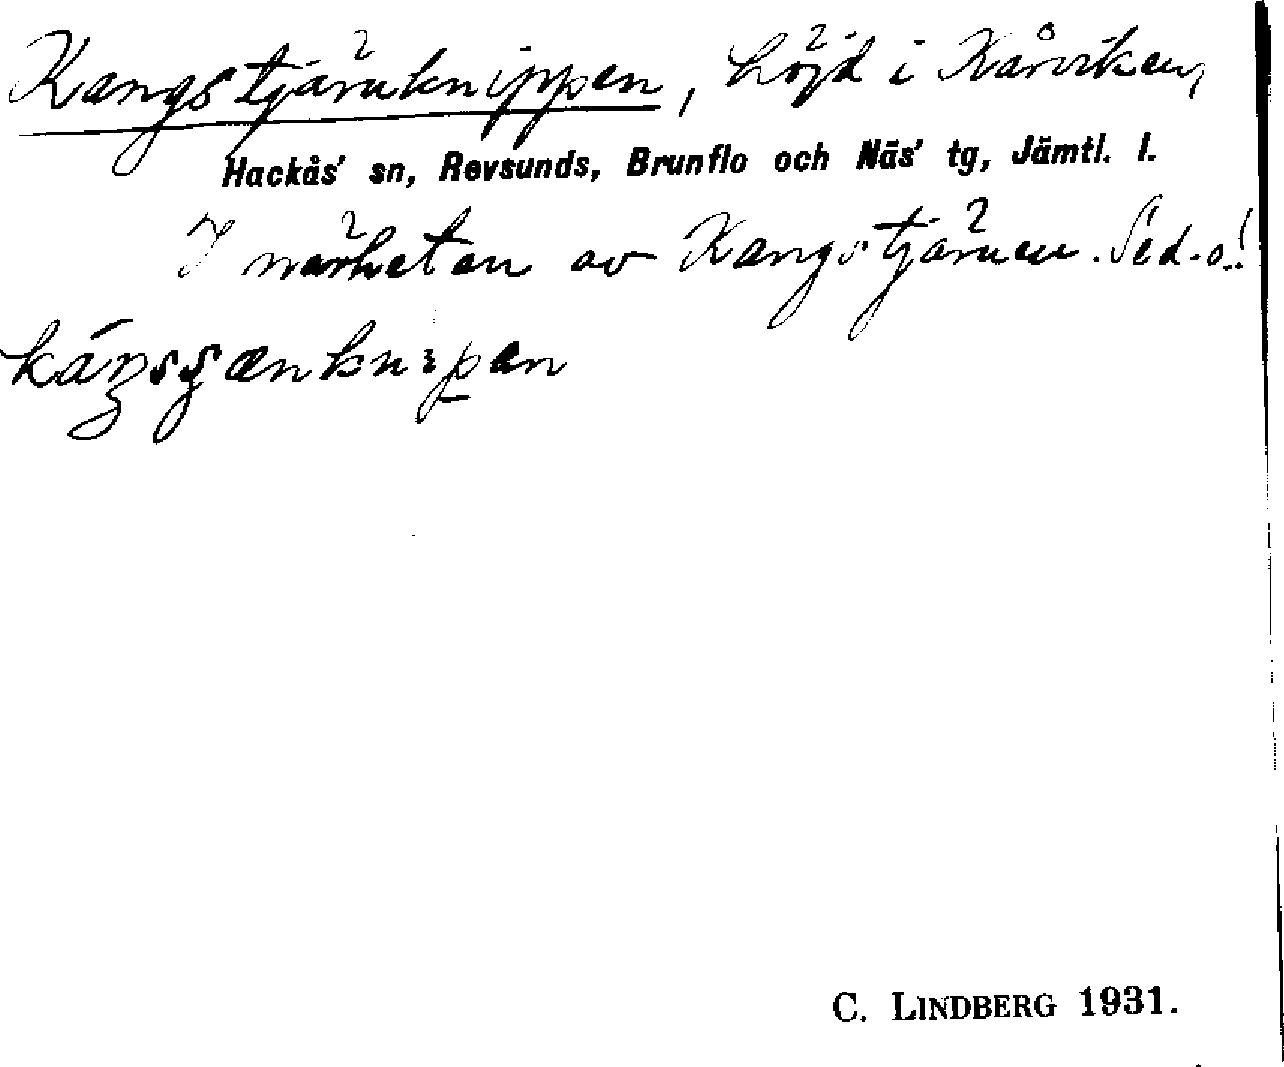 Kangstjärnknippen, höjd i Kårviken,
Hackås' sn, Revsunds, Brunflo och Näs' tg, Jämtl. l.
I närheten av Kangstjärnen. Se d.o.!
C. LINDBERG 1931.